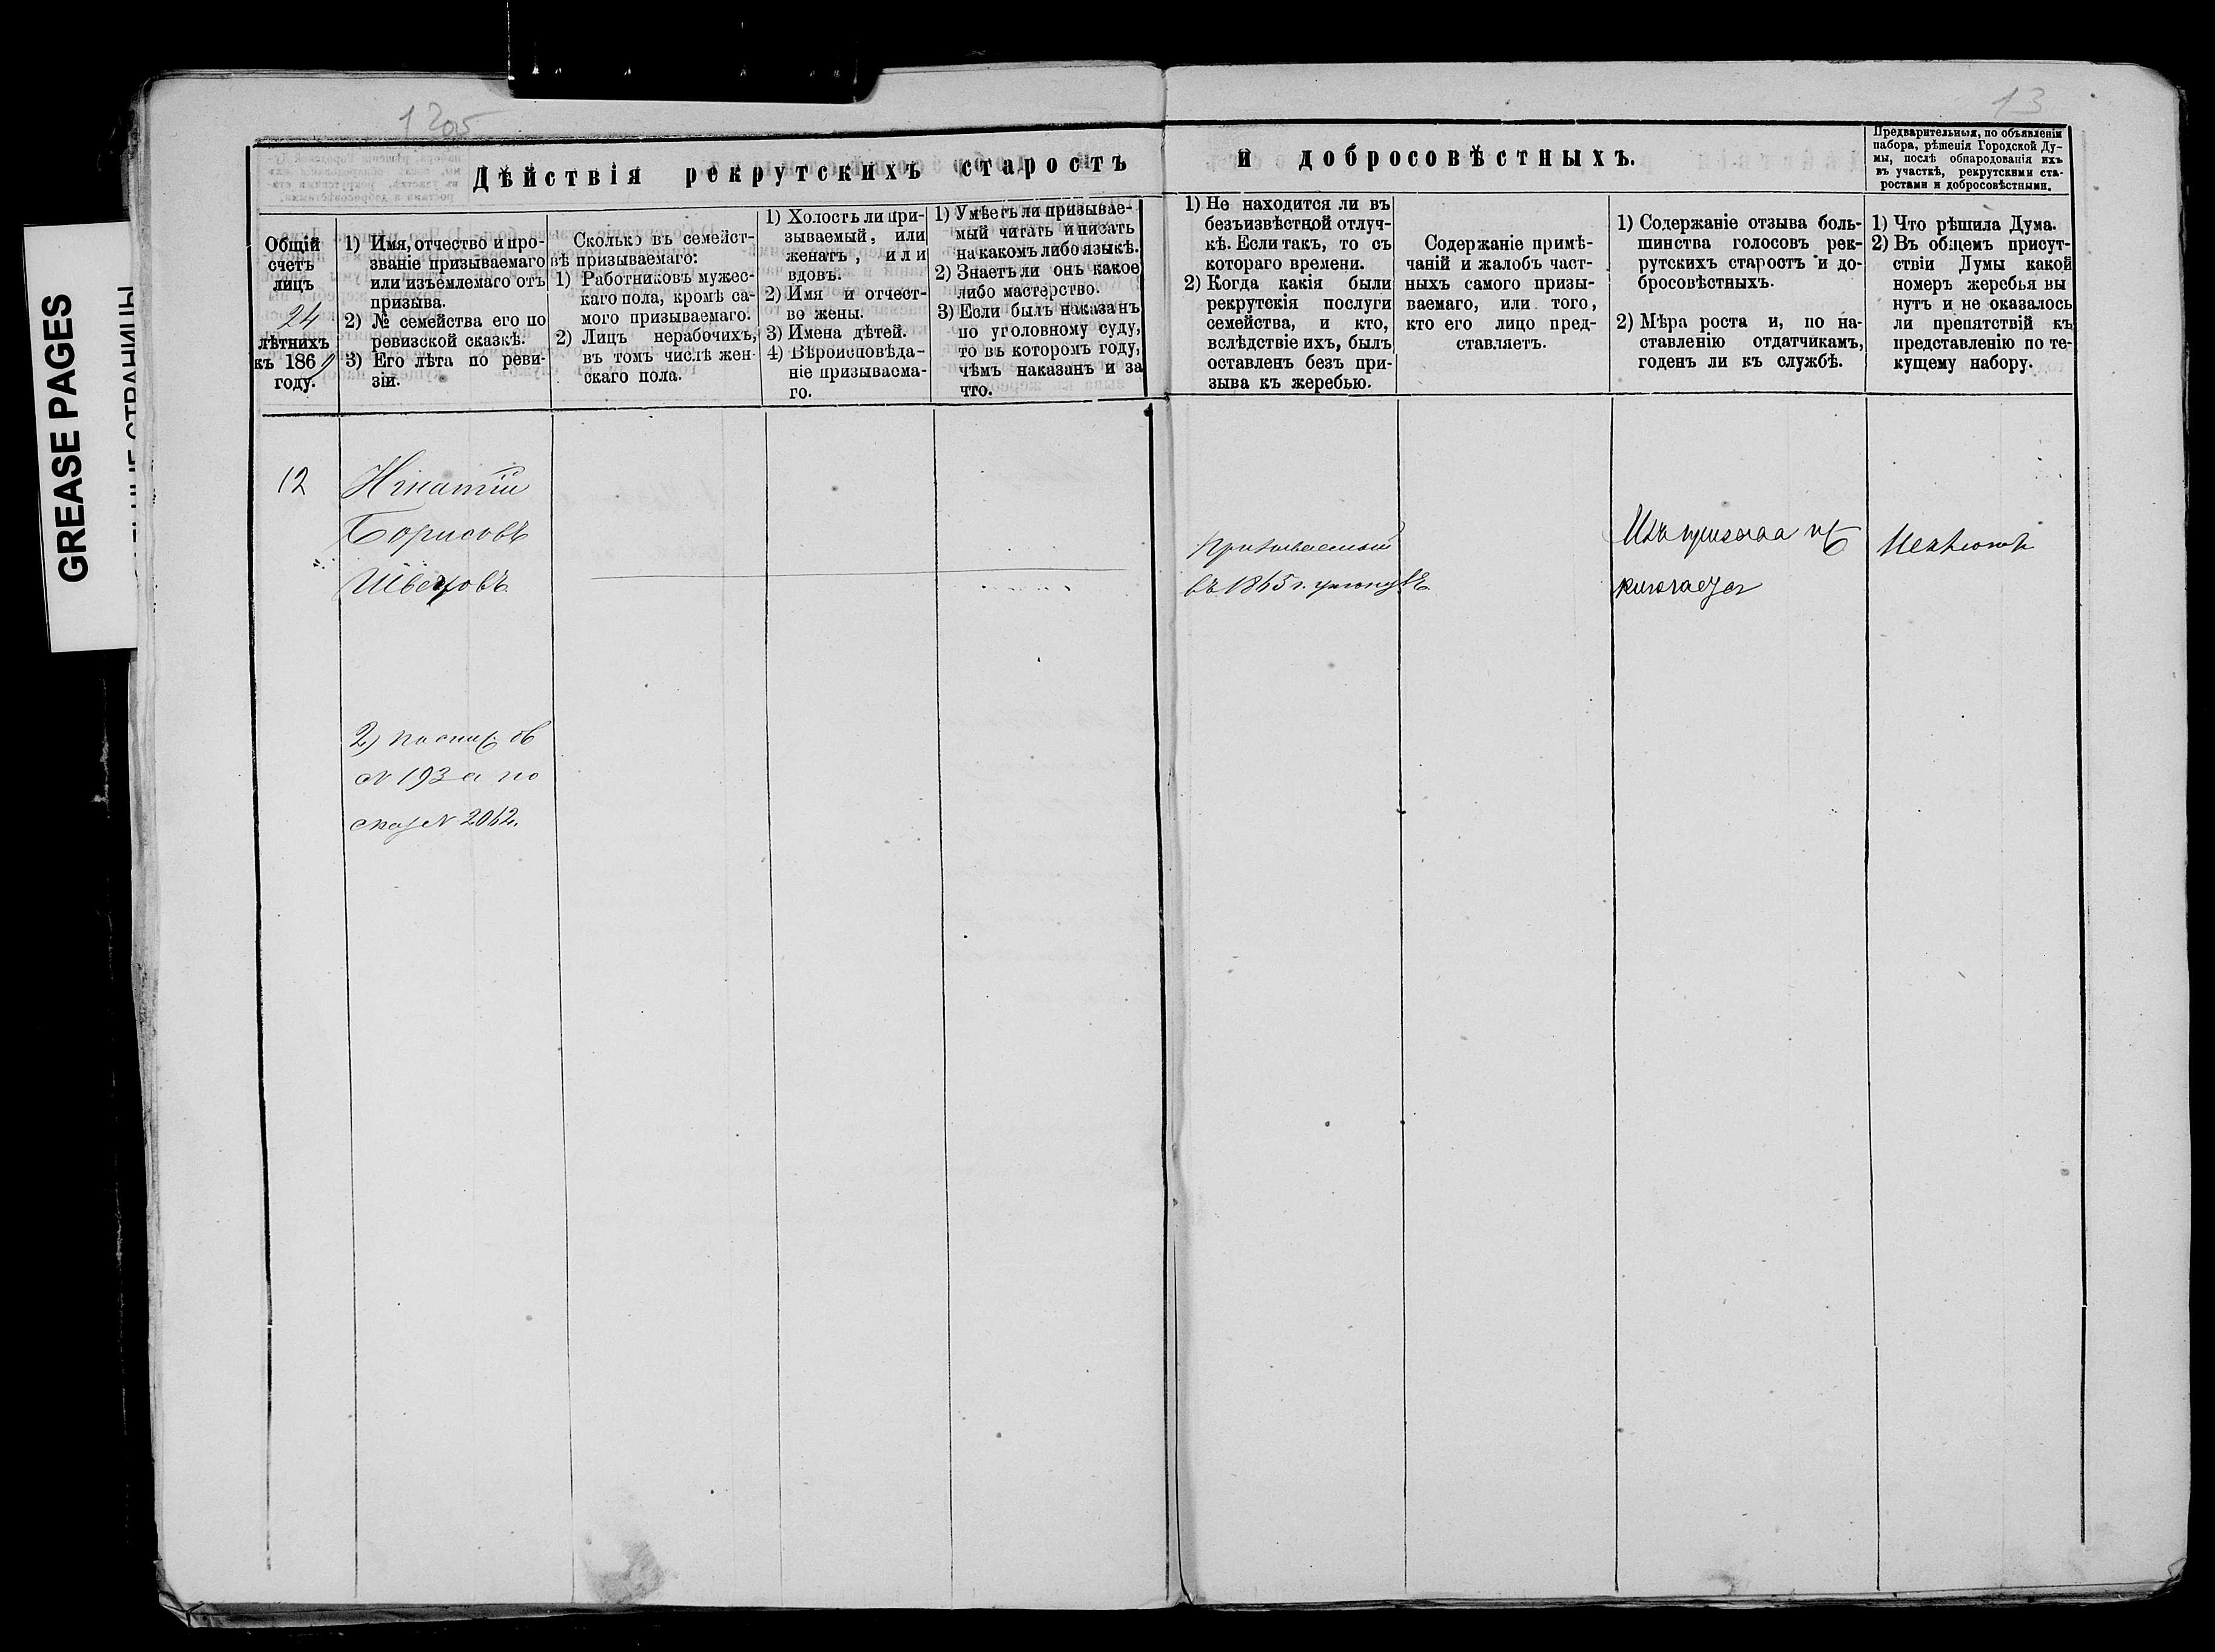 GREASE PAGES
12об
13
Дѣйствія рекрутскихъ старостъ и добросовѣстныхъ.
Предварительныя, по объявленіи
набора, рѣшенія Городской Ду-
мы, послѣ обнародованія ихъ
въ участкѣ, рекрутскими ста-
ростами и добросовѣстными.
Общій
счетъ
лицъ
24
лѣтнихъ
къ 186
году.
1) Имя, отчество и про-
званіе призываемаго
или изъемлемаго отъ
призыва.
2) № семейства его по
ревизской сказкѣ.
3) Его лѣта по реви-
зіи.
Сколько въ семейст-
вѣ призываемаго:
1) Работниковъ мужес-
каго пола, кромѣ са-
мого призываемаго.
2) Лицъ нерабочихъ,
въ томъ числѣ жен-
скаго пола.
1) Холостъ ли при-
зываемый, или
женатъ, или
вдовъ.
2) Имя и отчест-
во жены.
3) Имена дѣтей.
4) Вѣроисповѣда-
ніе призываема-
го.
1) Умѣетъ ли призывае-
мый читать и писать
на какомъ либо языкѣ.
2) Знаетъ ли онъ какое
либо мастерство.
3) Если былъ наказанъ
по уголовному суду,
то въ которомъ году,
чѣмъ наказанъ и за
что.
1) Не находится ли въ
безъизвѣстной отлуч-
кѣ. Если такъ, то съ
котораго времени.
2) Когда какія были
рекрутскія послуги
семейства, и кто,
вслѣдствіе ихъ, былъ
оставленъ безъ при-
зыва къ жеребью.
Содержаніе примѣ-
чаній и жалобъ част-
ныхъ самого призы-
ваемаго, или того,
кто его лицо пред-
ставляетъ.
1) Содержаніе отзыва боль-
шинства голосовъ рек-
рутскихъ старостъ и до-
бросовѣстныхъ.
2) Мѣра роста и, по на-
ставленію отдатчикамъ,
годенъ ли къ службѣ.
1) Что рѣшила Дума.
2) Въ общемъ присут-
ствіи Думы какой
номеръ жеребья вы
нутъ и не оказалось
ли препятствій къ
представленію по те-
кущему набору.
12
Игнатій
Борисовъ
Швецовъ
2) по спис. об
№ 193 а по
сказ № 2062.
Призываемый
въ 1865 г.
Изъ призыва